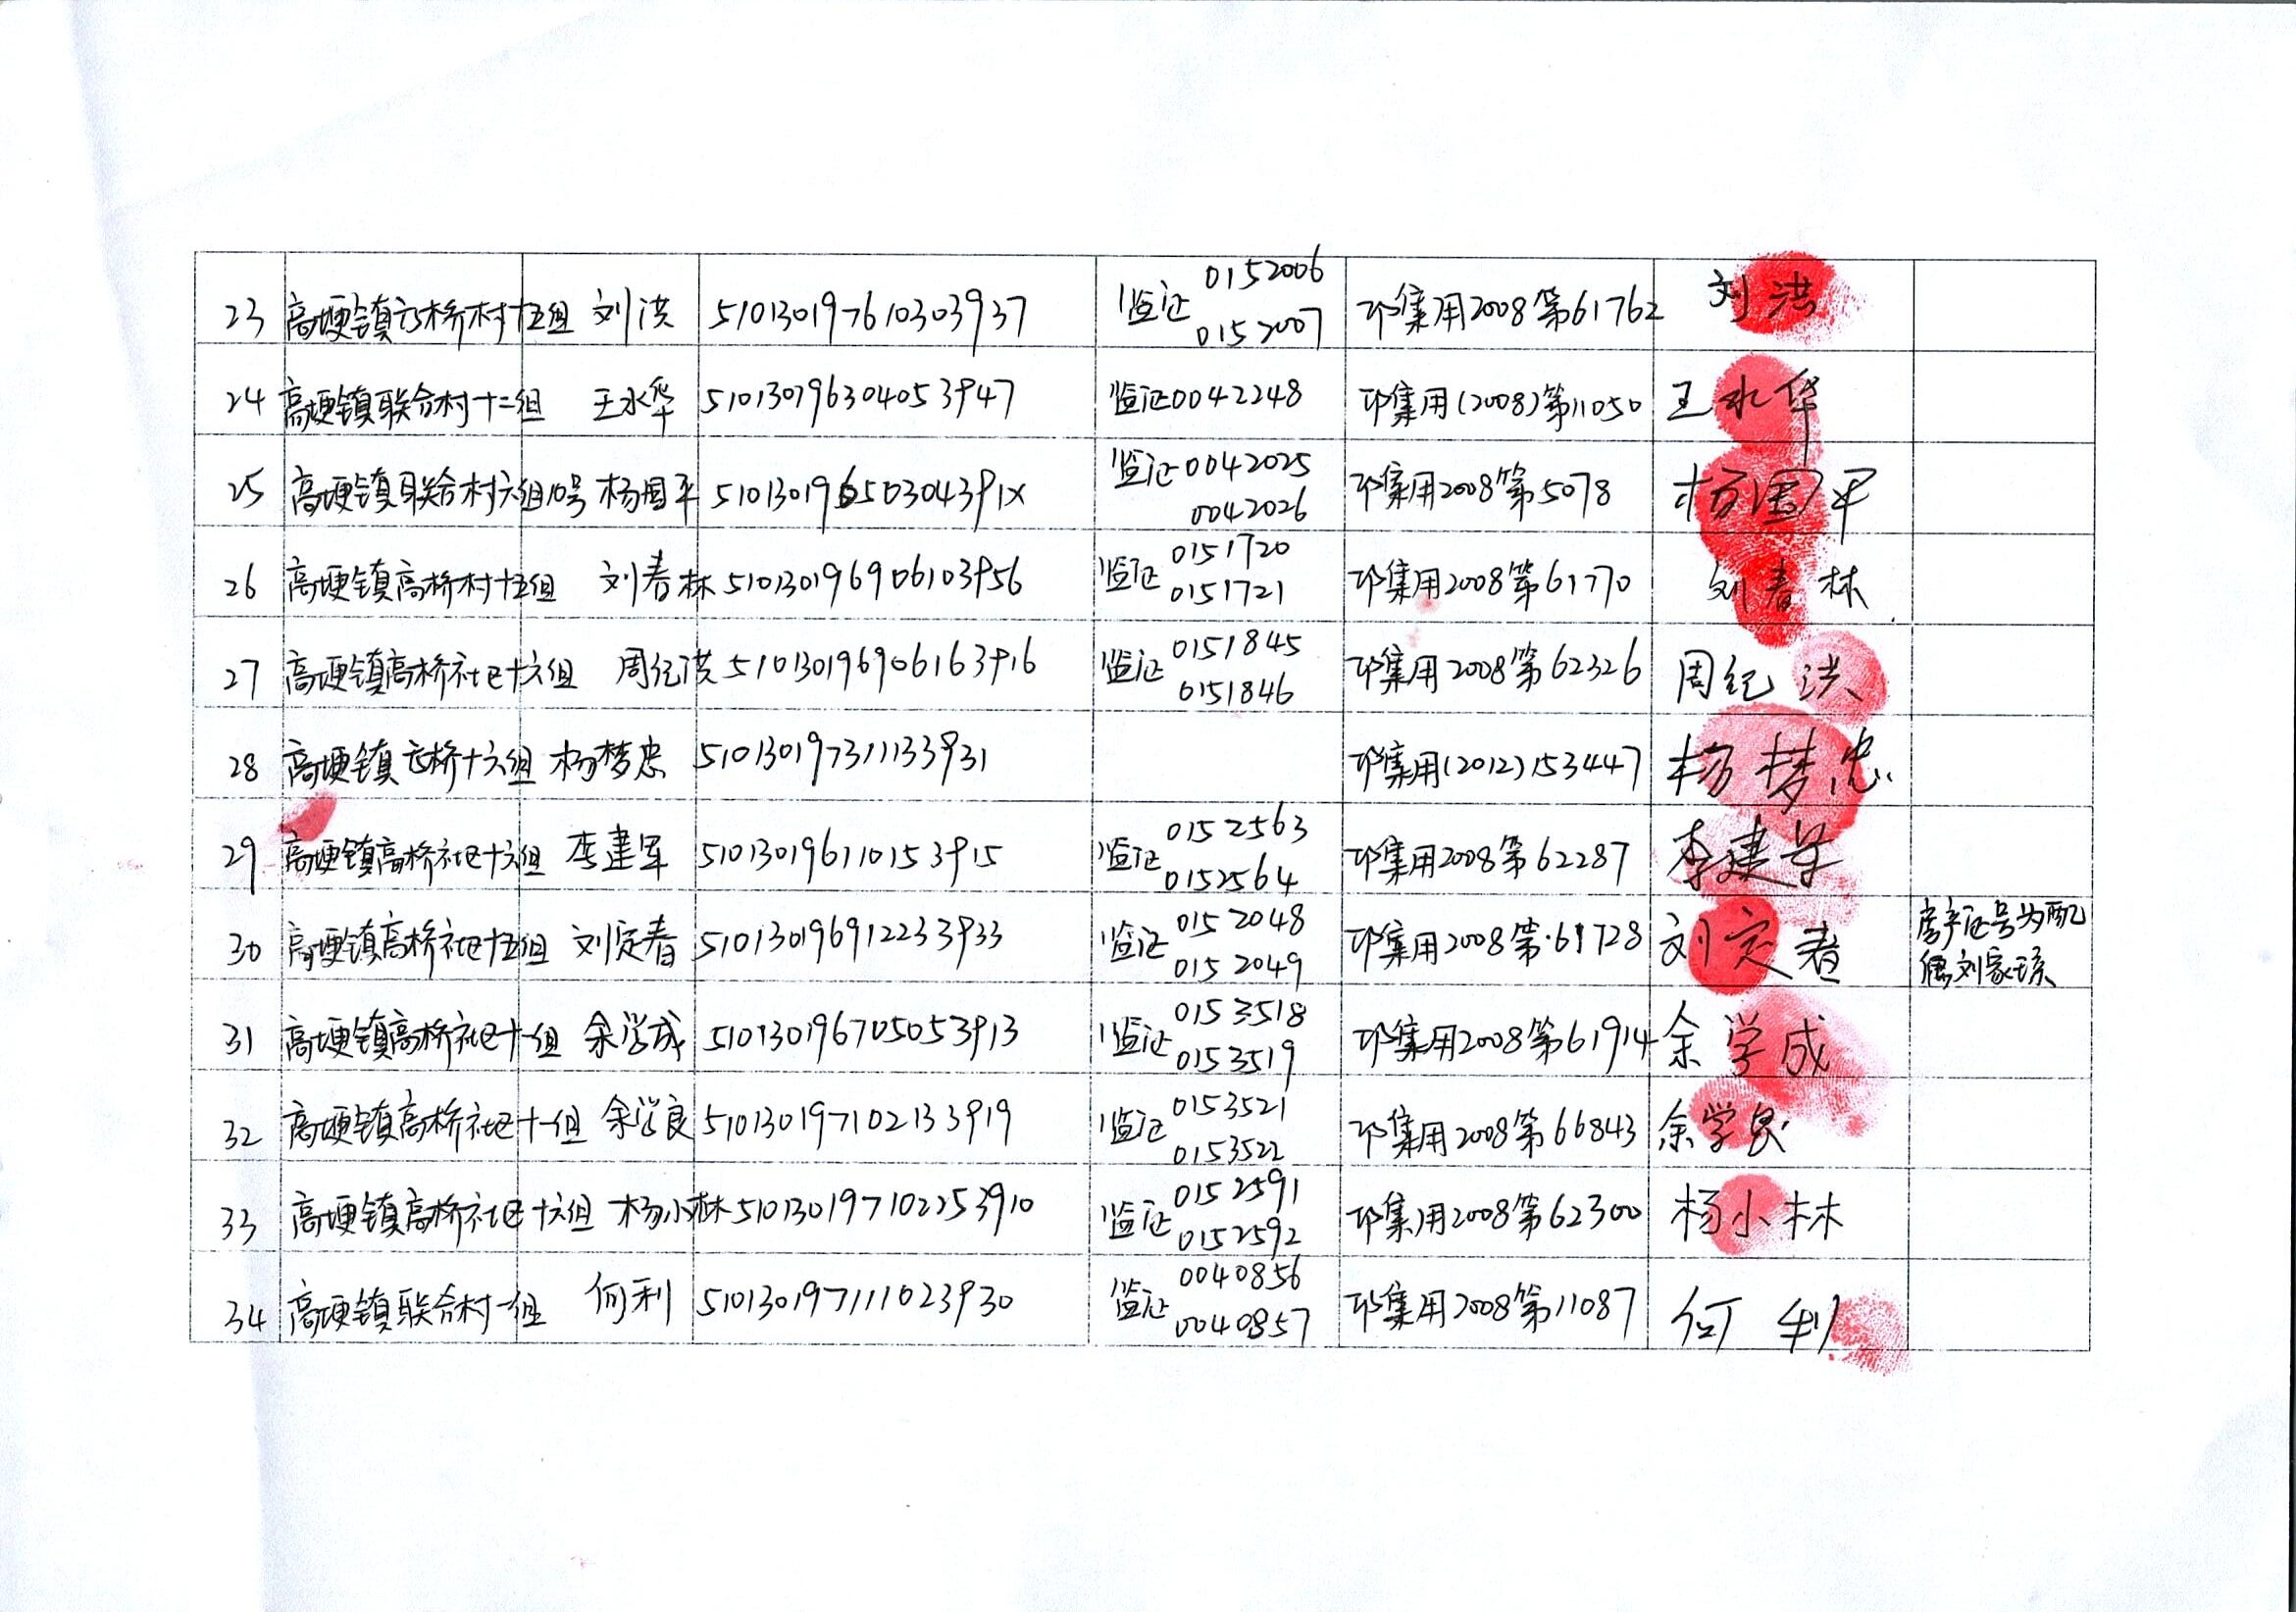 23 高埂镇高桥村十五组 刘洪 510130197610303937 监证 0152006 0152007 邛集用2008第61762 刘洪
24 高埂镇联合村十二组 王水华 510130196304053947 监证0042248 邛集用(2008)第11050 王水华
25 高埂镇联合村六组10号 杨国平 51013019650304391X 监证0042025 0042026 邛集用2008第5078 杨国平
26 高埂镇高桥村十五组 刘春林 510130196906103956 监证 0151720 0151721 邛集用2008第61770 刘春林
27 高埂镇高桥社区十六组 周纪洪 510130196906163916 监证 0151845 0151846 邛集用2008第62326 周纪洪
28 高埂镇高桥十六组 杨梦忠 510130197311133931 邛集用(2012)153447 杨梦忠
29 高埂镇高桥社区十六组 李建军 510130196110153915 监证 0152563 0152564 邛集用2008第62287 李建军
30 高埂镇高桥社区十五组 刘定春 510130196912233933 监证 0152048 0152049 邛集用2008第61728 刘定春 房产证号为配
偶刘家琼
31 高埂镇高桥社区十一组 余学成 510130196705053913 监证 0153518 0153519 邛集用2008第61914 余学成
32 高埂镇高桥社区十一组 余学良 510130197102133919 监证 0153521 0153522 邛集用2008第66843 余学良
33 高埂镇高桥社区十六组 杨小林 510130197102253910 监证 0152591 0152592 邛集用2008第62300 杨小林
34 高埂镇联合村一组 何利 510130197111023930 监证 0040856 0040857 邛集用2008第11087 何利